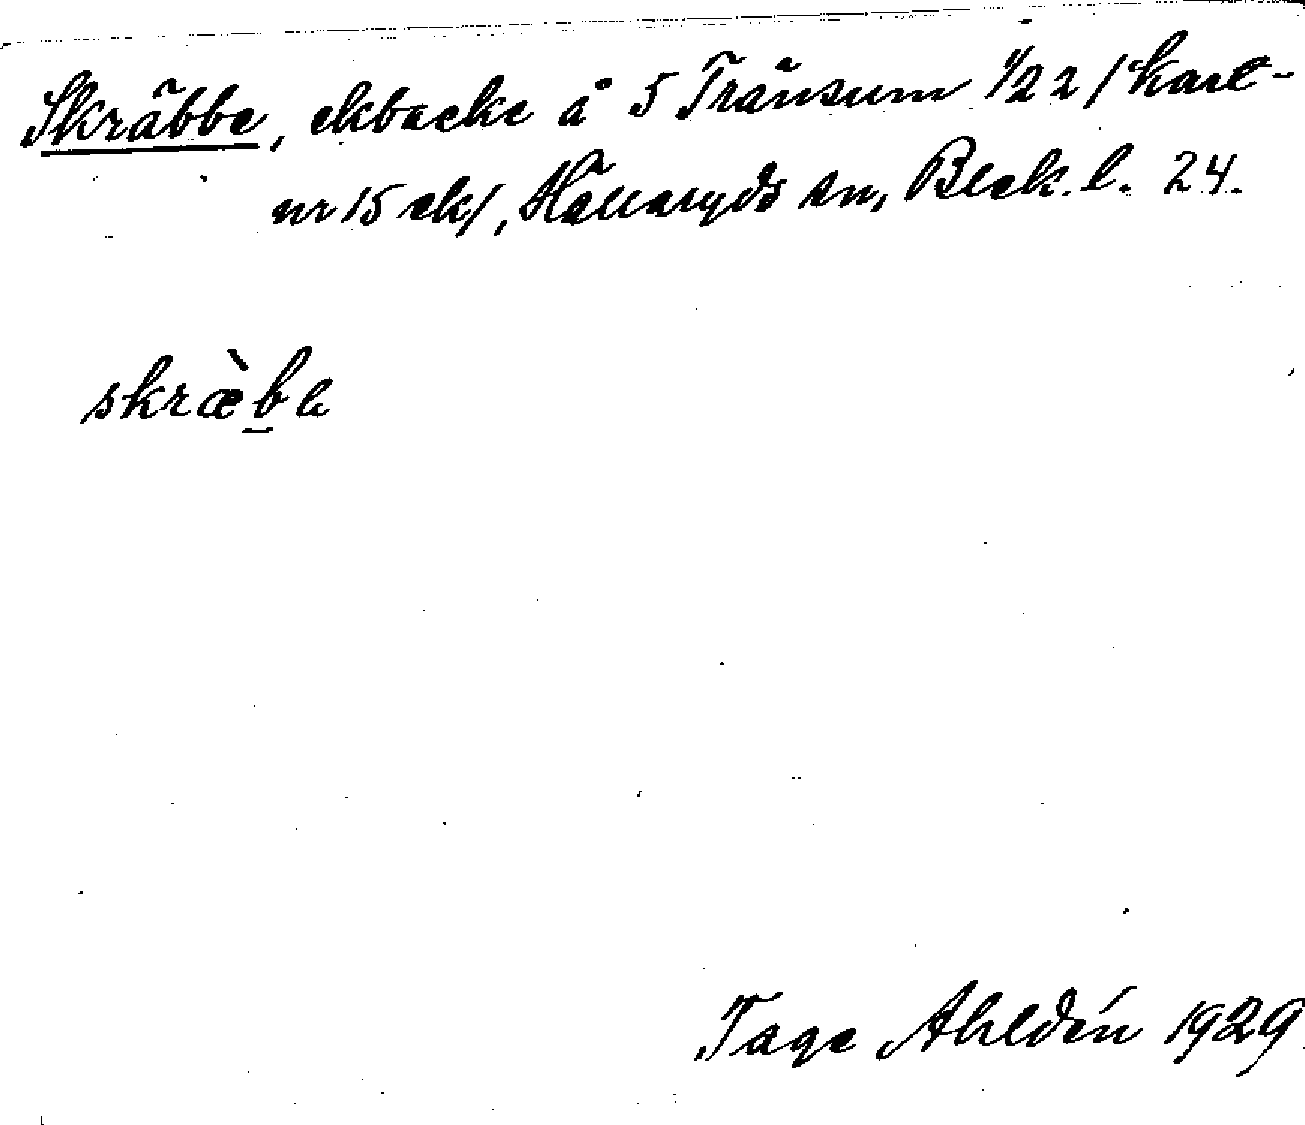 Skräbbe, ekbacke å 5 Tränsum 1/22 /kart-
nr 15 ek/, Hällaryds sn, Blek. l. 24.
skræ̀b̲e
Tage Ahldén 1929